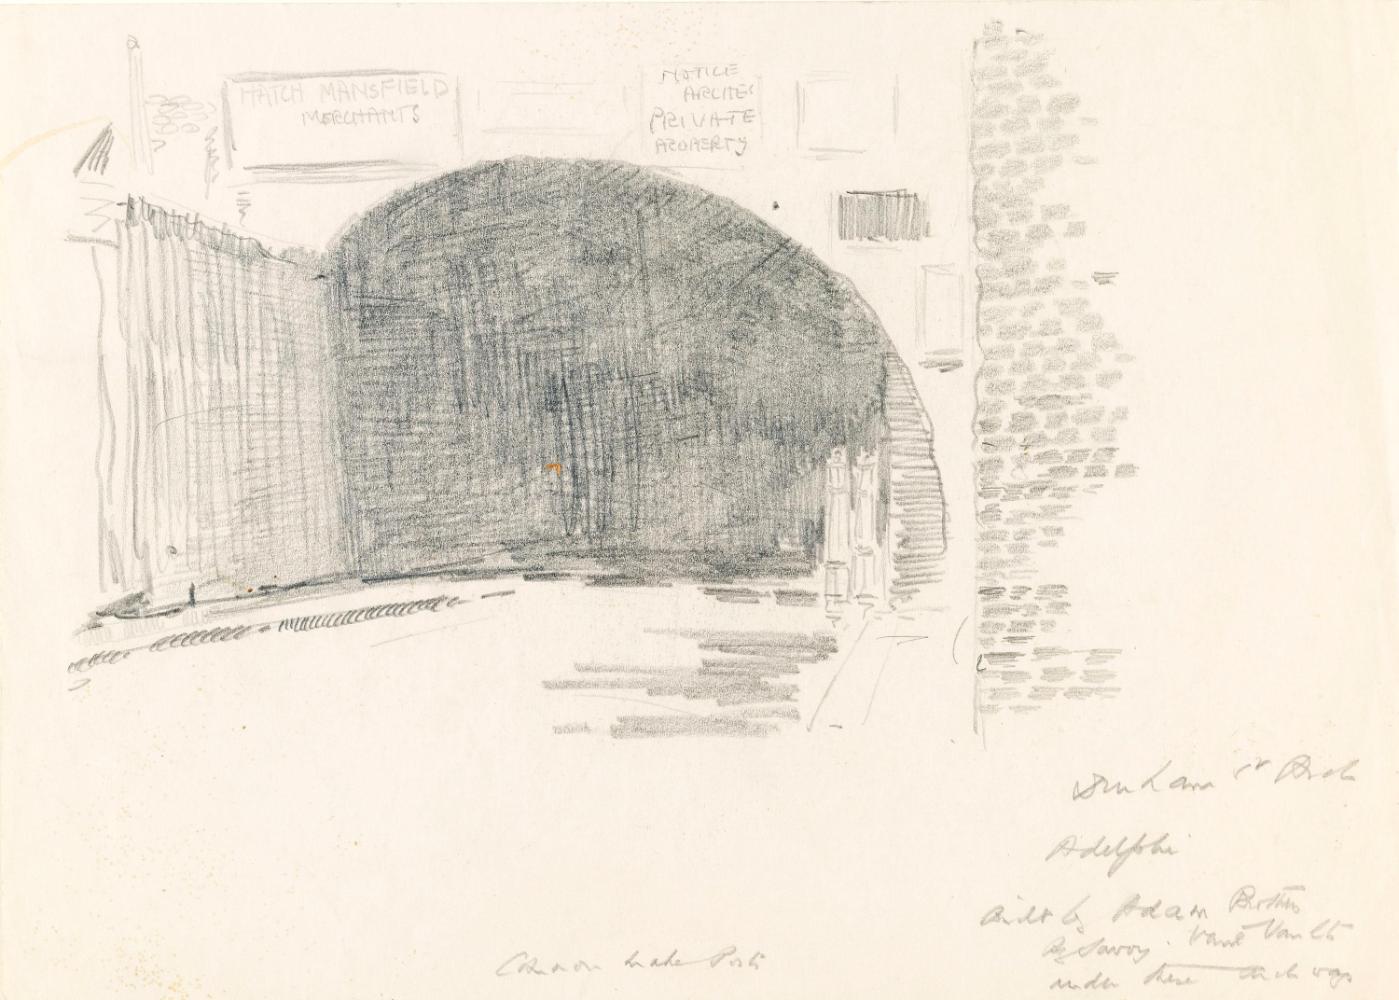 HATCH MANSFIELD
MERCHANTS
NOTICE
ARCHES
PRIVATE
PROPERTY
Durham St Arch
Adelphi
Built by Adam Brothers
By Savoy. Vaults
under these archways
Cannon Posts